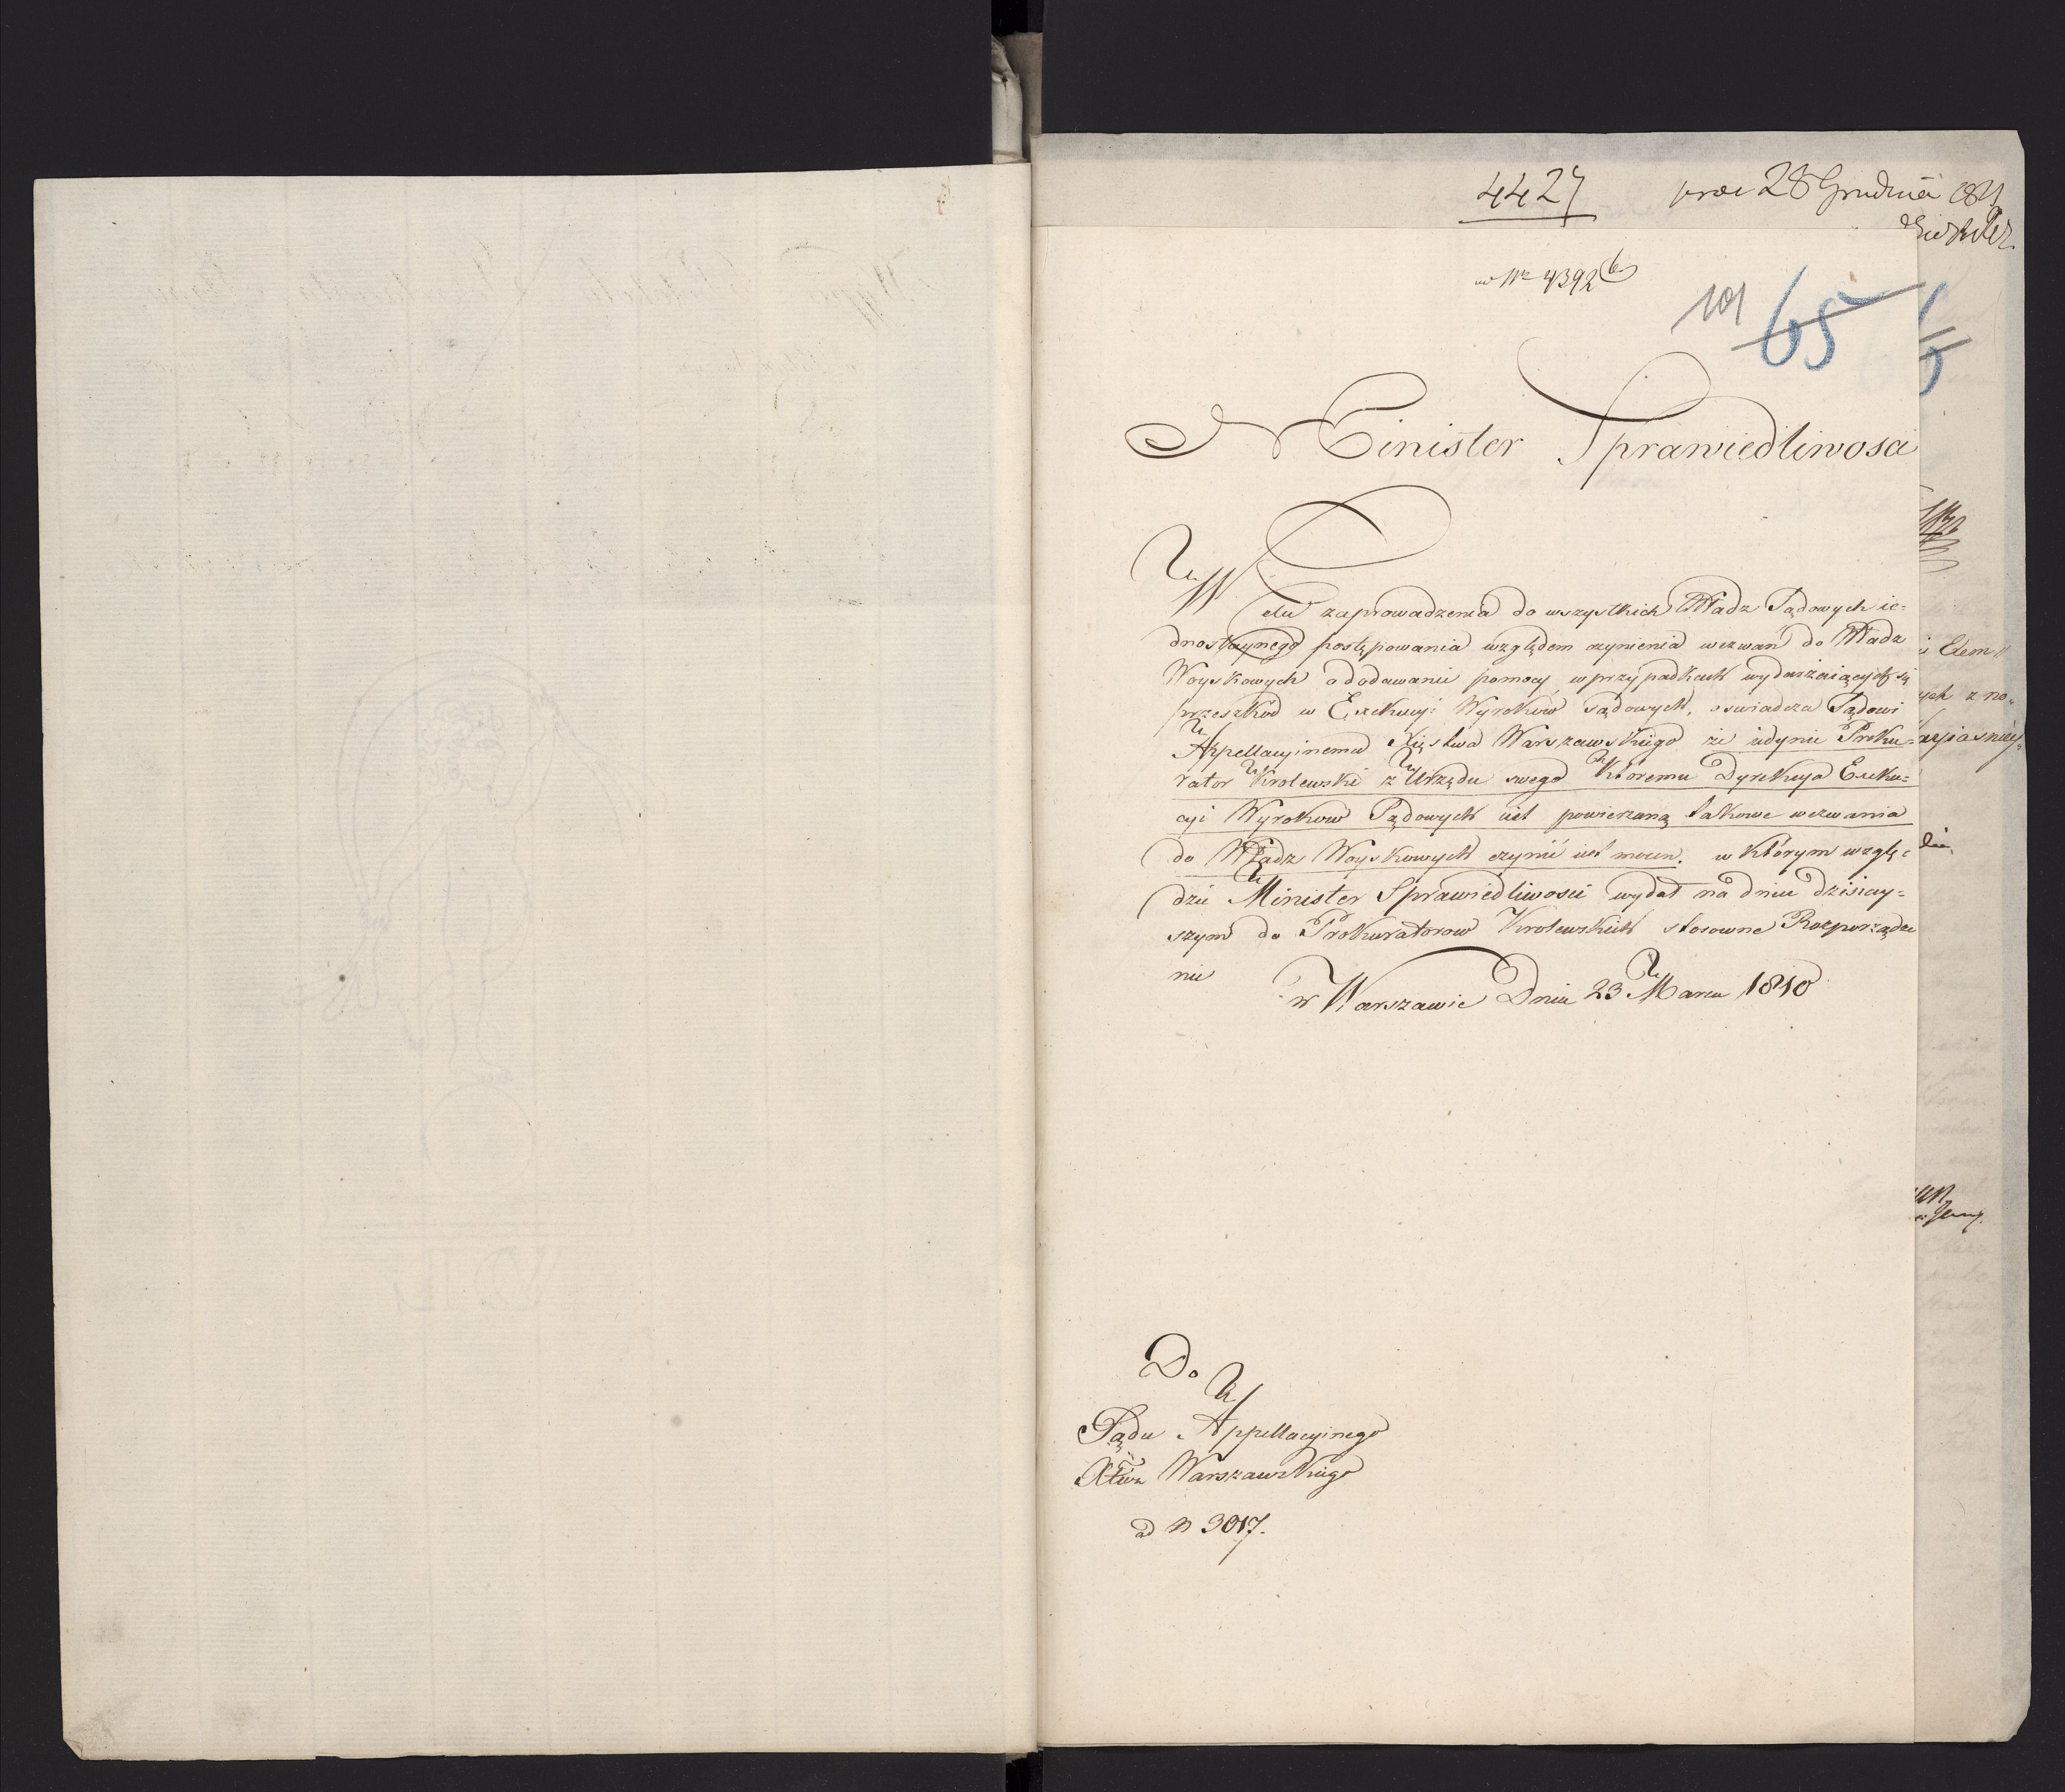 4427 prae 28 Grudnia 1821
ad Nr 4392
101 65
Minister Sprawiedliwosci
W Celu zaprowadzenia do wszystkich Władz Sądowych ie=
dnostaynego postępowania względem czynienia wezwań do Władz
Woyskowych o dodawanie pomocy w przypadkach wydarzaiących się
przeszkod w Exekucyi Wyrokow sądowych, oswiadcza Sądowi
Appellacyinemu Xięstwa Warszawskiego że iedynie Proku=
rator Krolewski z Urzędu swego ktoremu Dyrekcya Exeku=
cyi Wyrokow Sądowych iest powierzoną takowe wezwania
do Władz Woyskowych czynić iest mocen. w którym wzglę=
dzie Minister Sprawiedliwosci wydał na dniu dzisiay=
szym do Prokuratorow Krolewskich stosowne Rozporządze
nie
w Warszawie Dnia 23 Marca 1810
Do
Sądu Appellacyinego
Xtwa Warszawskiego
ad N 3017.